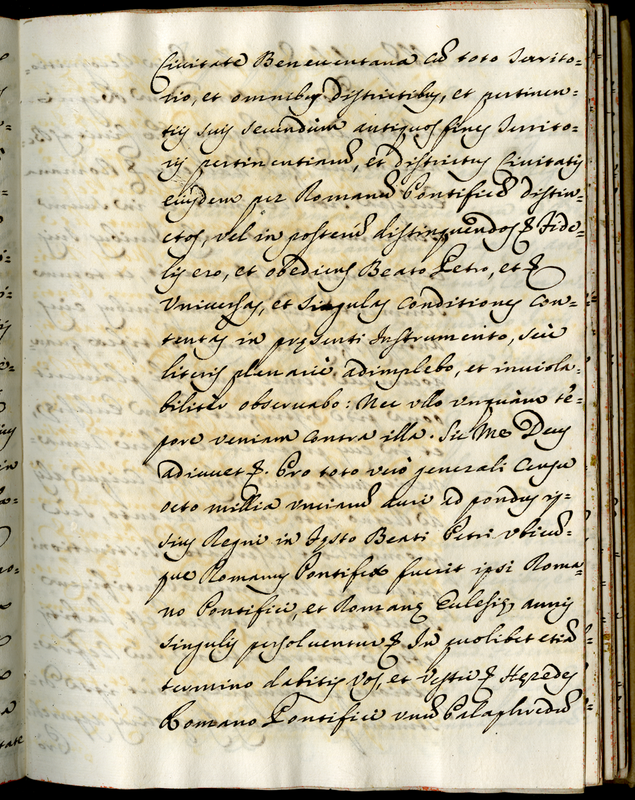 Civitate Beneventana cū toto Territo=
rio, et omnibus districtibus, et pertinen=
tijs suis secundum antiquos fines Territo=
rij pertinentiarū, et districtus Civitatis
eiusdem per Romanū Pontificē distin=
ctos, vel in posterū distinguendos &. Fide=
lis ero, et obediens Beato Petro, et &
Universas, et singulas conditiones con=
tentas in pręsenti Instrumento, seu
literis plenarie adimplebo, et inviola=
biliter observabo: Nec ullo unquàm tē=
pore veniam contra illa. Sic Me Deus
adiuvet &. Pro toto verò generali Censu
octo millia unciarū auri ad pondus ip=
sius Regni in Festo Beati Petri ubicū=
que Romanus Pontifex fuerit ipsi Roma=
no Pontifici, et Romanę Eclesię, annis
singulis persolventur & In quolibet etiā
termino dabitis vos, et vestri & Hęredes
Romano Pontifici unū Palaphredū